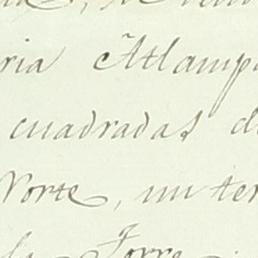 ria Atlampa
cuadradas d
Norte, un ter
la Torre